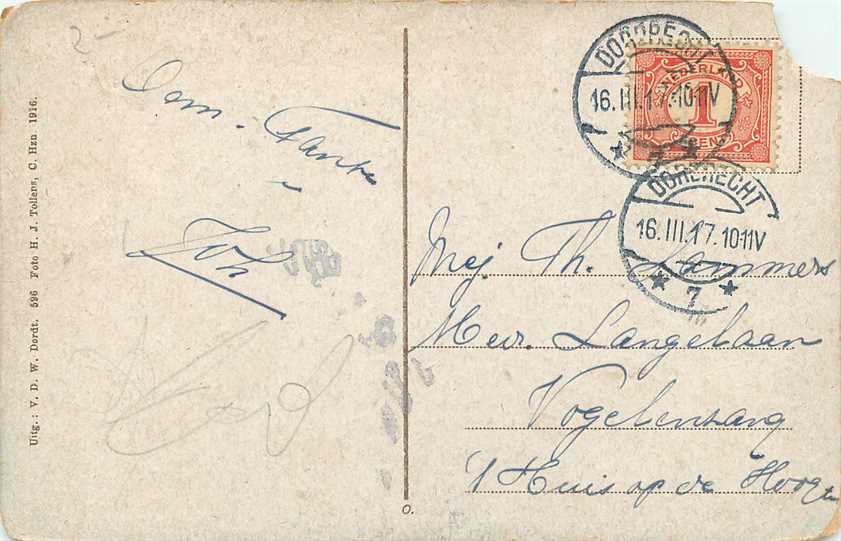 2-
Uitg.: V. D. W. Dordt. 596 Foto H. J. Tollens, C. Hzn 1916.
Oom. Tante
Joh
DORDRECHT
16.III.17.1011V
7
NEDERLAND
1
CENT
DORDRECHT
16.III.17.1011V
7
Mej Th. Lammers
Mevr. Langelaan
Vogelenzang
't Huis op de Hoogte
O.